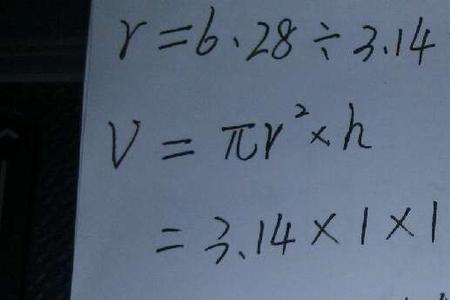 r=6.28÷3.14
V=πr²×h
=3.14×1×1